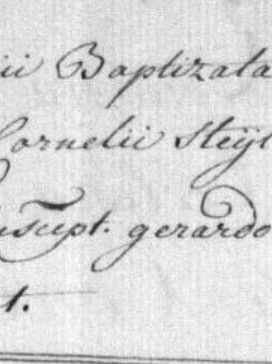 ii Baptizata
Cornelii Steyl
uscept. gerardo
t.